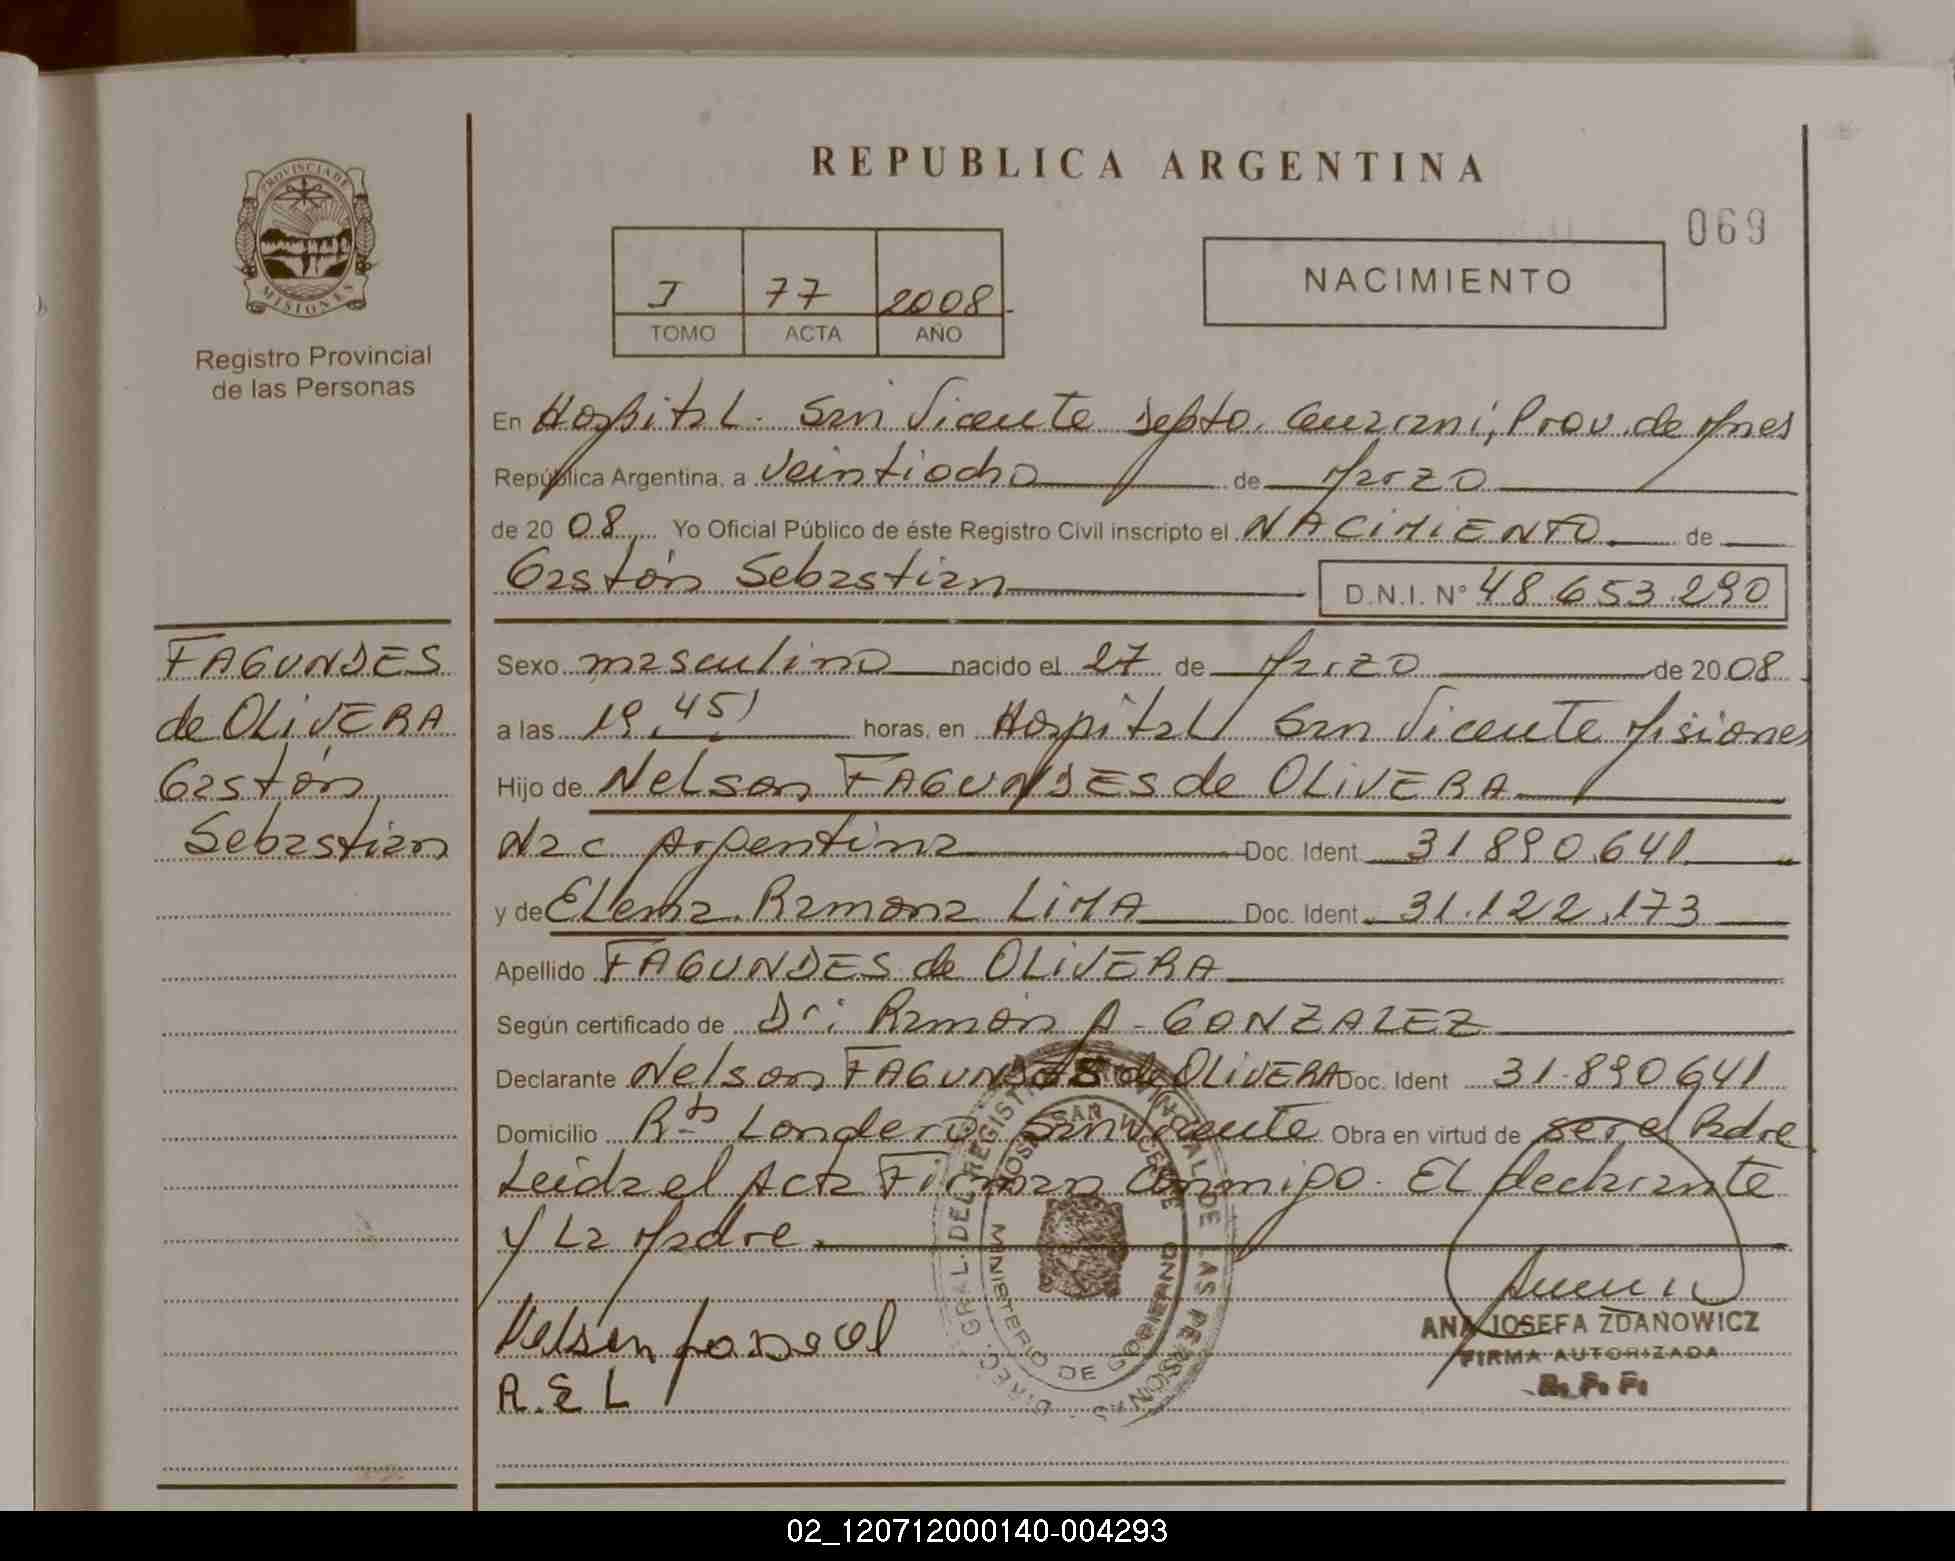 REPUBLICA ARGENTINA
069
PROVINCIA DE
MISIONES
Registro Provincial
de las Personas
I 77 2008
TOMO ACTA AÑO
NACIMIENTO
En Hospital San Vicente Depto. Guaraní, Prov. de Mnes
República Argentina, a veintiocho de Marzo
de 2008 Yo Oficial Público de éste Registro Civil inscripto el NACIMIENTO de
Gastón Sebastian D.N.I. N° 48.653.290
FAGUNDES
de OLIVERA
Gastón
Sebastian
Sexo masculino nacido el 27 de Marzo de 2008
a las 19,45' horas, en Hospital San Vicente Misiones
Hijo de Nelson FAGUNDES de OLIVERA
Nac Argentina Doc. Ident 31.890.641
y de Elena Ramona LIMA Doc. Ident 31.122.173
Apellido FAGUNDES de OLIVERA
Según certificado de Dr: Ramón A. GONZALEZ
Declarante Nelson FAGUNDES de OLIVERA Doc. Ident 31.890641
Domicilio Londero San Vicente Obra en virtud de ser el Padre
Leida el Acta Firman Conmigo. El declarante
y La Madre.
Nelson
R.E L
DIREC. GRAL. DEL REGISTRO PROVINCIAL DE LAS PERSONAS
SAN VICENTE
MINISTERIO DE GOBIERNO
ANA JOSEFA ZDANOWICZ
FIRMA AUTORIZADA
02_120712000140-004293